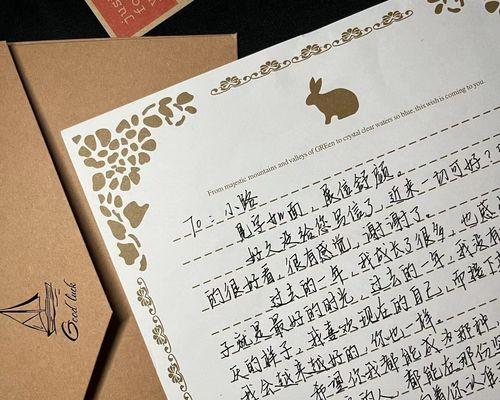 From majestic mountains and valleys of GREen to crystal clear waters so blue, this wish is coming to you.
To: 小路
见字如面 展信舒颜。
好久没给您写信了,近来一切可好?
的很好看,很有感觉,谢谢了。
过去的一年,我成长了很多,也感
子就是最好的时光,过去的一年,我没有
灰的样子,我喜欢现在的自己,而接下
我会越来越好的,你也一样。
希望你我都能成为那种
的人,都能在那份
Good luck